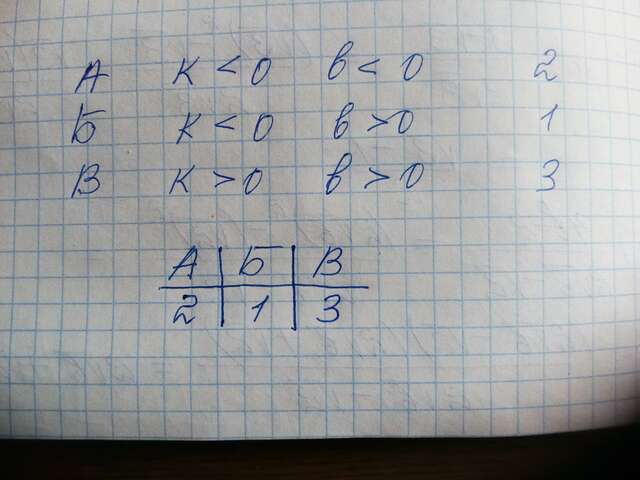 А к < 0 в < 0 2
Б к < 0 в > 0 1
В к > 0 в > 0 3
А Б В
2 1 3